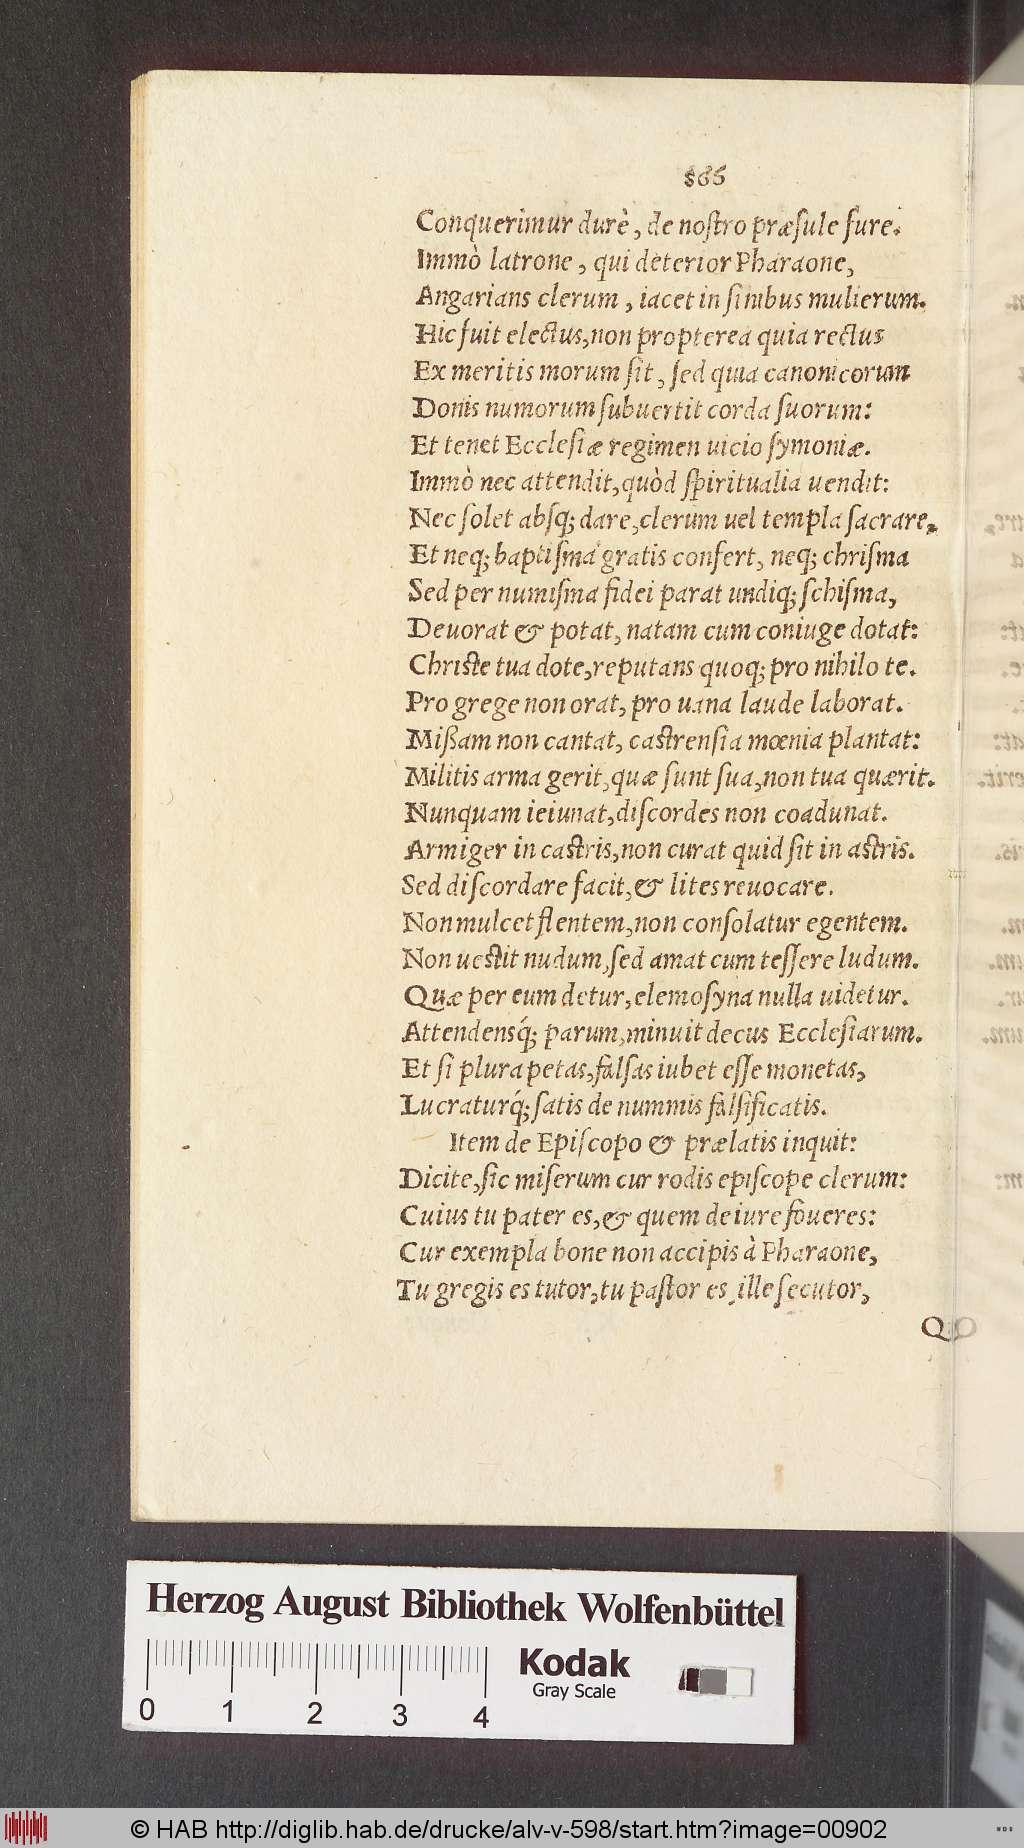 865
Conquerimur durè, de noſtro præſule fure.
Immò latrone, qui deterior Pharaone,
Angarians clerum, iacet in ſinibus mulierum.
Hic fuit electus, non propterea quia rectus
Ex meritis morum ſit, ſed quia canonicorum
Donis numorum ſubuertit corda ſuorum:
Et tenet Eccleſiæ regimen uicio ſymoniæ.
Immò nec attendit, quòd ſpiritualia uendit:
Nec ſolet abſq; dare, clerum uel templa ſacrare,
Et neq; baptiſma gratis confert, neq; chriſma
Sed per numiſma fidei parat undiq; ſchiſma,
Deuorat & potat, natam cum coniuge dotat:
Chriſte tua dote, reputans quoq; pro nihilo te.
Pro grege non orat, pro uana laude laborat.
Mißam non cantat, caſtrenſia mœnia plantat:
Militis arma gerit, quæ ſunt ſua, non tua quærit.
Nunquam ieiunat, diſcordes non coadunat.
Armiger in caſtris, non curat quid ſit in aſtris.
Sed diſcordare facit, & lites reuocare.
Non mulcet flentem, non conſolatur egentem.
Non ueſtit nudum, ſed amat cum teſſere ludum.
Quæ per eum detur, elemoſyna nulla uidetur.
Attendensq́; parum, minuit decus Eccleſiarum.
Et ſi plura petas, falſas iubet eſſe monetas,
Lucraturq́; ſatis de nummis falſificatis.
Item de Epiſcopo & prælatis inquit:
Dicite, ſic miſerum cur rodis epiſcope clerum:
Cuius tu pater es, & quem de iure foueres:
Cur exempla bone non accipis à Pharaone,
Tu gregis es tutor, tu paſtor es, ille ſecutor,
Herzog August Bibliothek Wolfenbüttel
Kodak
Gray Scale
0 1 2 3 4
© HAB http://diglib.hab.de/drucke/alv-v-598/start.htm?image=00902